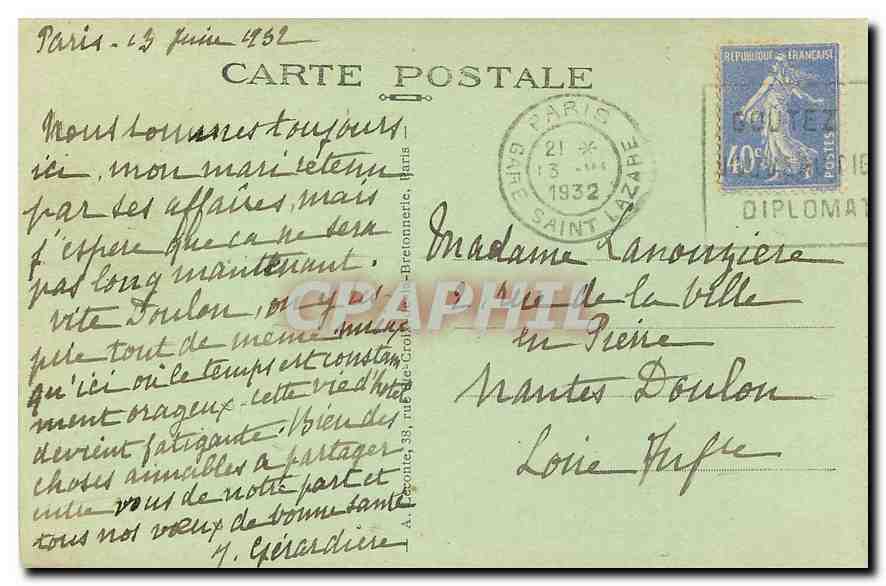 Paris - 13 Juin 1932
CARTE POSTALE
Nous sommes toujours
ici, mon mari retenu
par ses affaires, mais
j'espère que ca ne sera
pas long maintenant.
vite Doulon, on y res-
pire tout de même mieux
qu'ici où le temps est constam
ment orageux - cette vie d'hotel
devient fatigante. Bien des
choses aimables a partager
entre vous de notre part et
tous nos vœux de bonne santé
Y. Gérardière
A. Leconte, 38, rue Ste-Croix-de-la-Bretonnerie, Paris
PARIS
GARE SAINT LAZARE
21 *
13 - VI
1932
REPUBLIQUE FRANÇAISE
40c
POSTES
GOUTEZ
DIPLOMAT
Madame Lanouzière
rue de la Ville
en Pierre
Nantes Doulon
Loire Infre
CPAPHIL